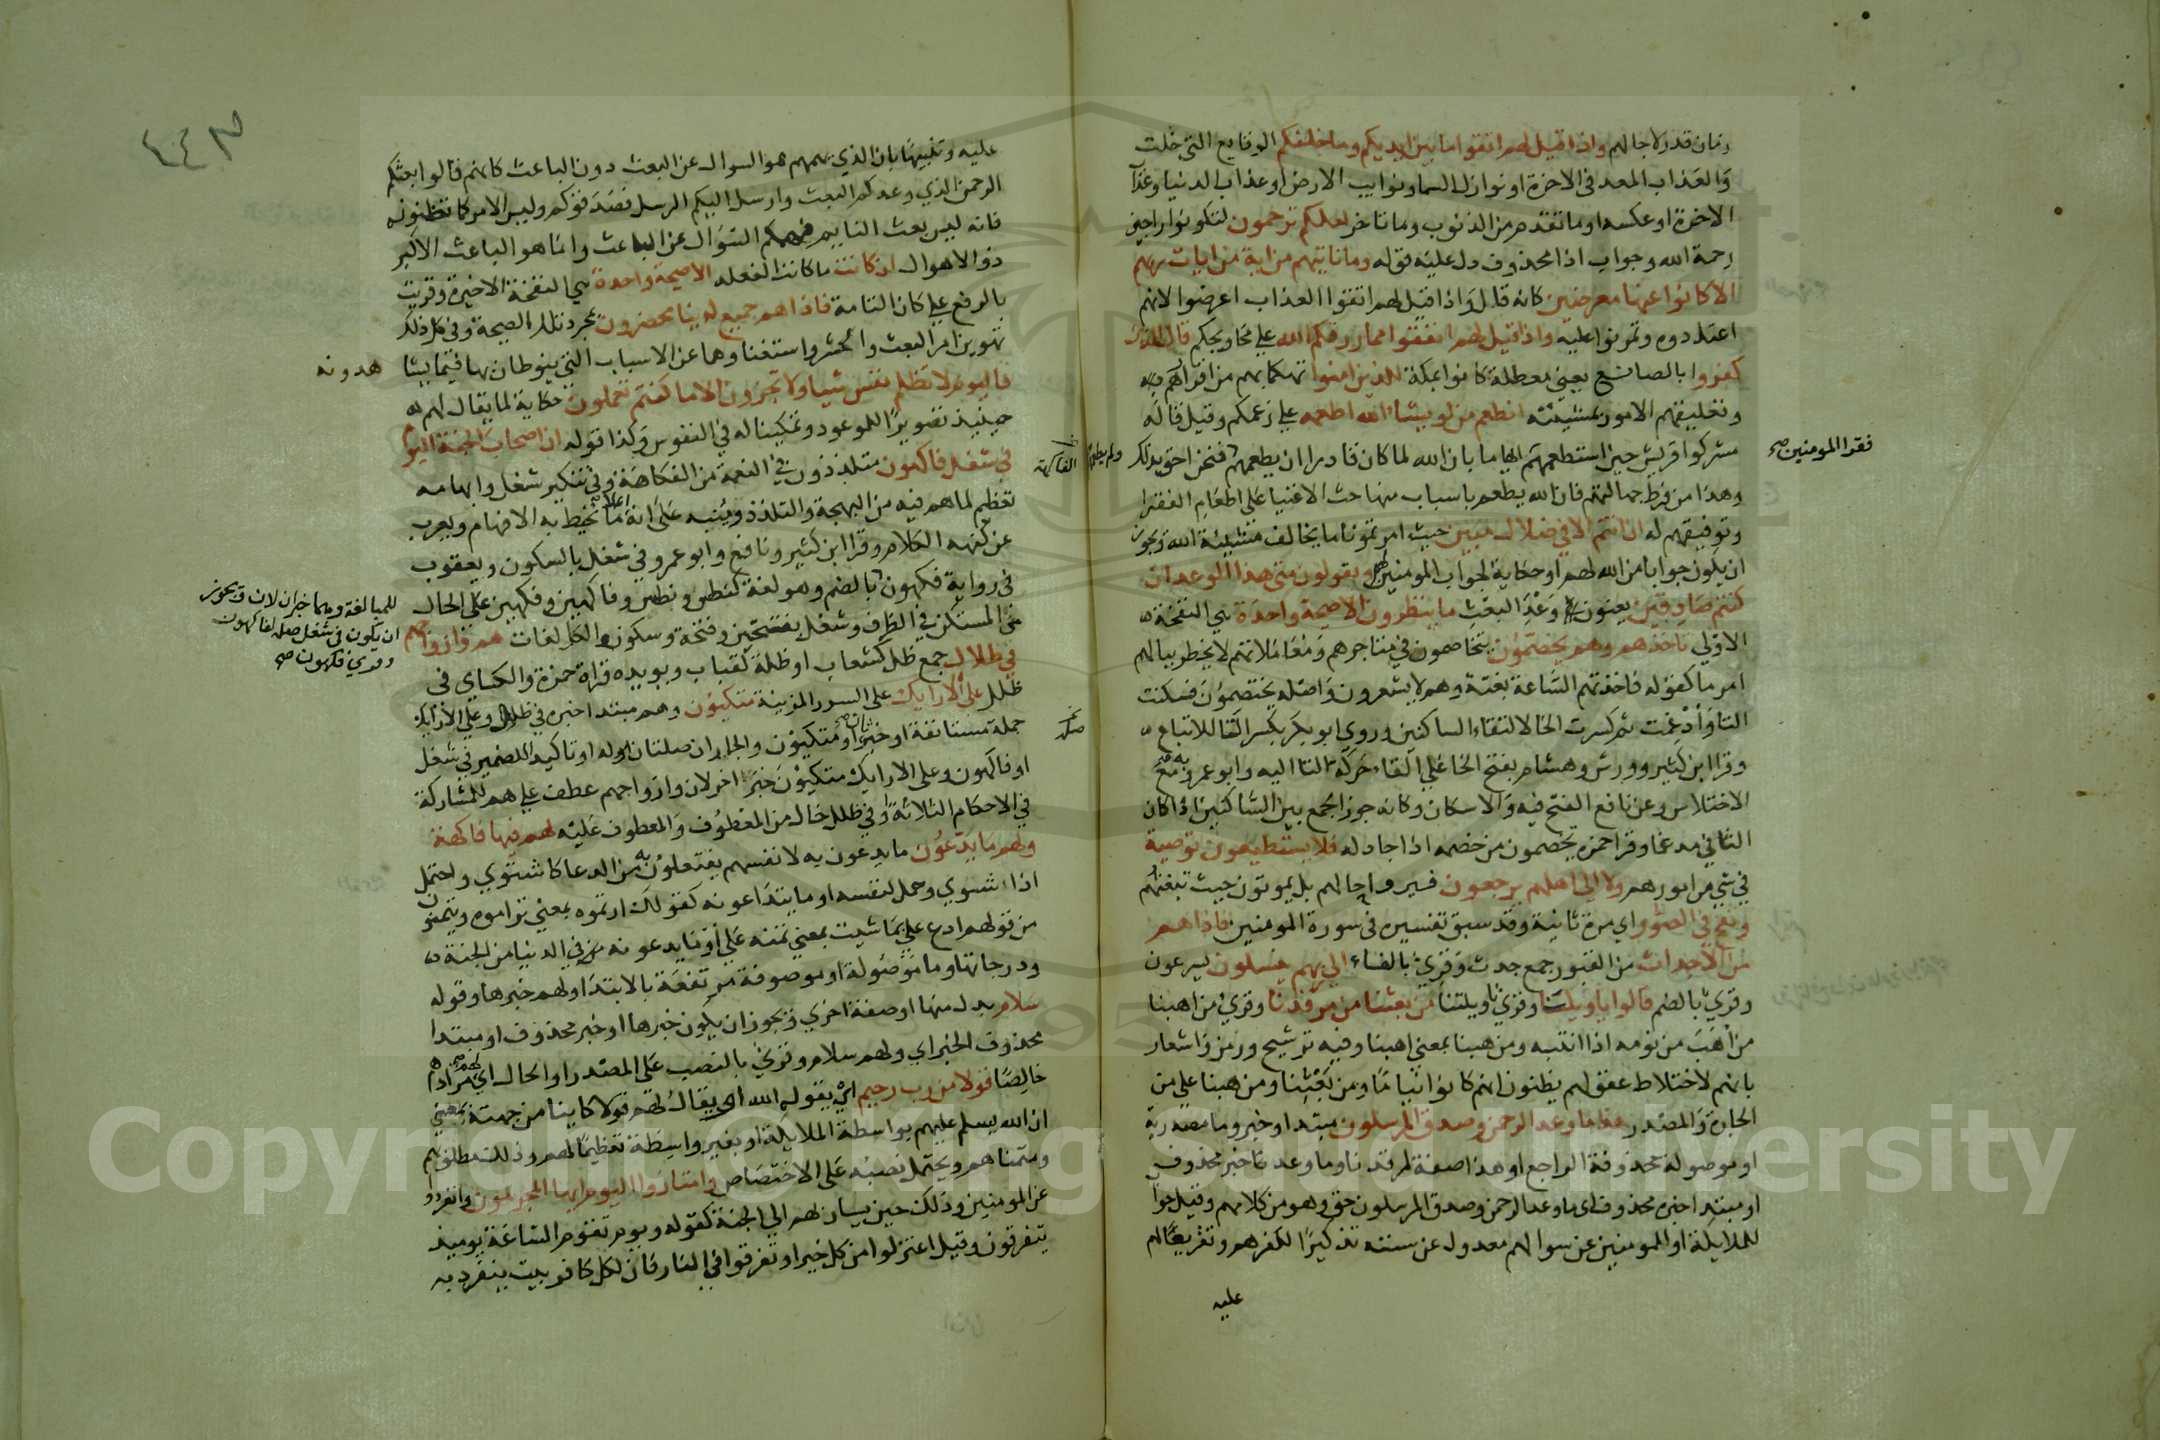 زمان قدر لاجالهم واذا قيل لهم اتقوا ما بين ايديكم وما خلفكم الوقايع التي خلت
والعذاب المعد في الاخرة او نوازل السما ونوايب الارض او عذاب الدنيا وعذاب
الاخرة او عكسه او ما تقدم من الذنوب وما تاخر لعلكم ترحمون لتكونوا راجين
رحمة الله وجواب اذا محذوف دل عليه قوله وما تاتيهم من اية من ايات ربهم
الا كانوا عنها معرضين كانه قال واذا قيل لهم اتقوا العذاب اعرضوا لانهم
اعتادوه وتمرنوا عليه واذا قيل لهم انفقوا مما رزقكم الله على محاويجكم قال الذين
كفروا بالصانع يعني معطلة كانوا بمكة للذين امنوا تهكما بهم من اقرارهم به
وتعليقهم الامور بمشيئته انطعم من لو يشاء الله اطعمه على زعمكم وقيل قاله
مشركوا قريش حين استطعمهم ايهاما بان الله لما كان قادرا ان يطعمهم فنحن احق بذلك
ولم يطعمهم
فقرا المومنين صح
وهذا من فرط جهالتهم فان الله يطعم باسباب منها حث الاغنيا على اطعام الفقرا
وتوفيقهم له ان انتم الا في ضلال مبين حيث امرتمونا ما يخالف مشيئة الله ويجوز
ان يكون جوابا من الله لهم او حكاية لجواب المومنين لهم ويقولون متى هذا الوعد ان
كنتم صادقين يعنون وعد البعث ما ينظرون الا صيحة واحدة هي النفخة
الاولى تاخذهم وهم يخصمون يتخاصمون في متاجرهم ومعاملاتهم لا يخطر ببالهم
امرها كقوله فاخذتهم الساعة بغتة وهم لا يشعرون واصله يختصمون فسكنت
التا وادغمت ثم كسرت الخا لالتقاء الساكنين وروى ابو بكر بكسر اليا للاتباع
وقرا ابن كثير وورش وهشام بفتح الخا على القاء حركة التا اليه وابو عمرو به مع
الاختلاس وعن نافع الفتح فيه والاسكان وكانه جوز الجمع بين الساكنين اذا كان
الثاني مدغما وقرا حمزة يخصمون من خصمه اذا جادله فلا يستطيعون توصية
في شي من امورهم ولا الى اهلهم يرجعون فيروا حالهم بل يموتون حيث تبغتهم
ونفخ في الصور اي مرة ثانية وقد سبق تفسيره في سورة المومنين فاذا هم
من الاجداث من القبور جمع جدث وقرئ بالفاء الى ربهم ينسلون يسرعون
وقرئ بالضم قالوا يا ويلنا وقرئ يا ويلتنا من بعثنا من مرقدنا وقرئ من اهبنا
من اهب من نومه اذا انتبه ومن هبنا بمعنى اهبنا وفيه ترشيح ورمز واشعار
بانهم لاختلاط عقولهم يظنون انهم كانوا نياما ومن بعثنا ومن هبنا على من
الجارة والمصدر هذا ما وعد الرحمن وصدق المرسلون مبتدا وخبر وما مصدرية
او موصولة محذوفة الراجع او هذا صفة لمرقدنا وما وعد خبر محذوف
او مبتدا خبره محذوف اى ما وعد الرحمن وصدق المرسلون حق وهو من كلامهم وقيل جواب
للملايكة او المومنين عن سوالهم معدول عن سننه تذكيرا لكفرهم وتقريعا لهم
عليه
٤٤٣
عليه وتنبيها بان الذي يهمهم هو السوال عن البعث دون الباعث كانهم قالوا بعثكم
الرحمن الذي وعدكم البعث وارسل اليكم الرسل فصدقوكم وليس الامر كما تظنونه
فانه ليس بعث النايم فيهمكم السؤال عن الباعث وانما هو الباعث الاكبر
ذو الاهوال ان كانت ما كانت الفعله الا صيحة واحدة هي النفخة الاخيرة وقريت
بالرفع على كان التامة فاذا هم جميع لدينا محضرون بمجرد تلك الصيحة وفي كل ذلك
تهوين امر البعث والحشر واستغناوهما عن الاسباب التي ينوطان بها فيما يشا
هدونه
فاليوم لا تظلم نفس شيا ولا تجزون الا ما كنتم تعملون حكاية لما يقال لهم
حينيذ تصويرا للموعود وتمكينا له في النفوس وكذا قوله ان اصحاب الجنة اليوم
في شغل فاكهون متلذذون في النعمة من الفكاهة وفي تنكير شغل وابهامه
الفاكهة
تعظيم لما هم فيه من البهجة والتلذذ وتنبيه على انه اعلا ما يحيط به الافهام ويعرب
عن كنهه الكلام وقرا ابن كثير ونافع وابو عمرو في شغل بالسكون ويعقوب
في رواية فكهون بالضم وهو لغة كنطس ونطس وفاكهين وفكهين على الحال
للمبالغة وهما خبران لان ويجوز
ان يكون في شغل صلة لفاكهون
وقرئ فكهون صح
من المستكن في الظرف وشغل بفتحتين وفتحة وسكون والكل لغات هم وازواجهم
في ظلال جمع ظل كشعاب او ظلة كقباب ويويده قراة حمزة والكساي في
ظلل على الارايك على السرر المزينة متكيون وهم مبتدا خبره في ظلال وعلى الارايك
جملة مستانفة او خبر ثان او متكيون والجاران صلتان له او تاكيد للضمير في شغل
صلة
او فاكهون وعلى الارايك متكيون خبر اخر لان وازواجهم عطف على هم للمشاركة
في الاحكام الثلاثة وفي ظلال حال من المعطوف والمعطوف عليه لهم فيها فاكهة
ولهم ما يدعون ما يدعون به لانفسهم يفتعلون به من الدعا كاشتوى واحتمل
اذا شوى وحمل لنفسه او ما يتداعونه كقولك ارتموه بمعنى تراموه ويتمنون
من قولهم ادع علي ما شيت بمعنى تمنه علي او ما يدعونه في الدنيا من الجنة
ودرجاتها وما موصولة او موصوفة مرتفعة بالابتدا ولهم خبرها وقوله
سلام بدل منها او صفة اخرى ويجوز ان يكون خبرها او خبر محذوف او مبتدا
محذوف الخبر اي ولهم سلام وقرئ بالنصب على المصدر او الحال اي لهم مرادهم
خالصا قولا من رب رحيم اي يقول الله او يقال لهم قولا كاينا من جهته بمعنى
ان الله يسلم عليهم بواسطة الملايكة او بغير واسطة تعظيما لهم وذلك مطلوبهم
ومتمناهم ويحتمل نصبه على الاختصاص وامتازوا اليوم ايها المجرمون وانفردوا
عن المومنين وذلك حين يسار بهم الى الجنة كقوله ويوم تقوم الساعة يوميذ
يتفرقون وقيل اعتزلوا من كل خير او تفرقوا في النار فان لكل كافر بيت ينفرد به
Copyright © King Saud University